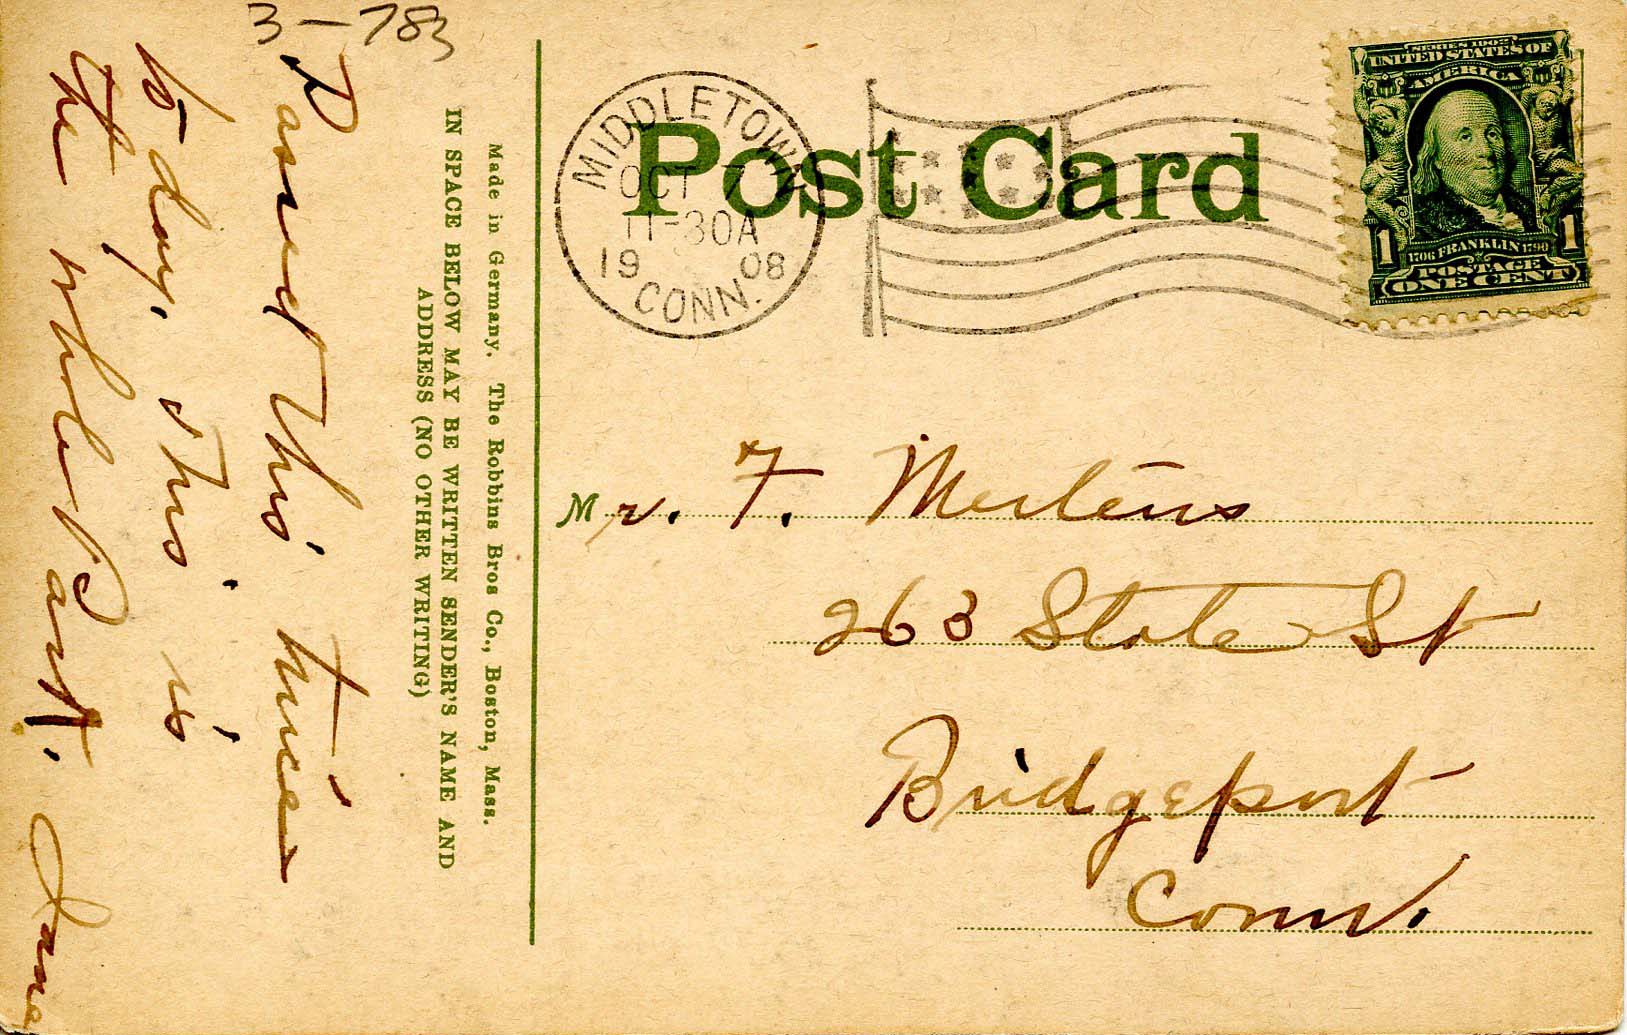 3-783
Passed this twice
to day. This is
the whole Part.
Made in Germany. The Robbins Bros Co., Boston, Mass.
IN SPACE BELOW MAY BE WRITTEN SENDER'S NAME AND
ADDRESS (NO OTHER WRITING)
Post Card
MIDDLETOWN
OCT 7
11-30A
1908
CONN.
SERIES 1902
UNITED STATES OF
AMERICA
1 1
1706 FRANKLIN 1790
POSTAGE
ONE CENT
Mr. F. Mertens
263 State St
Bridgeport
Conn.